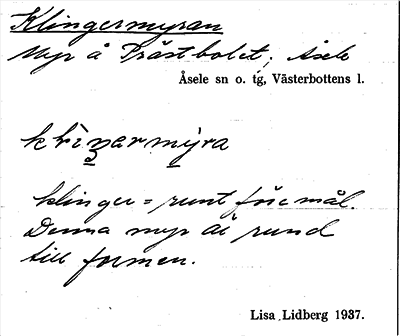 Klingermyran
Myr å Prästbolet, Åsele
Åsele sn o. tg, Västerbottens l.
klinger = runt föremål.
Denna myr är rund
till formen.
Lisa Lidberg 1937.